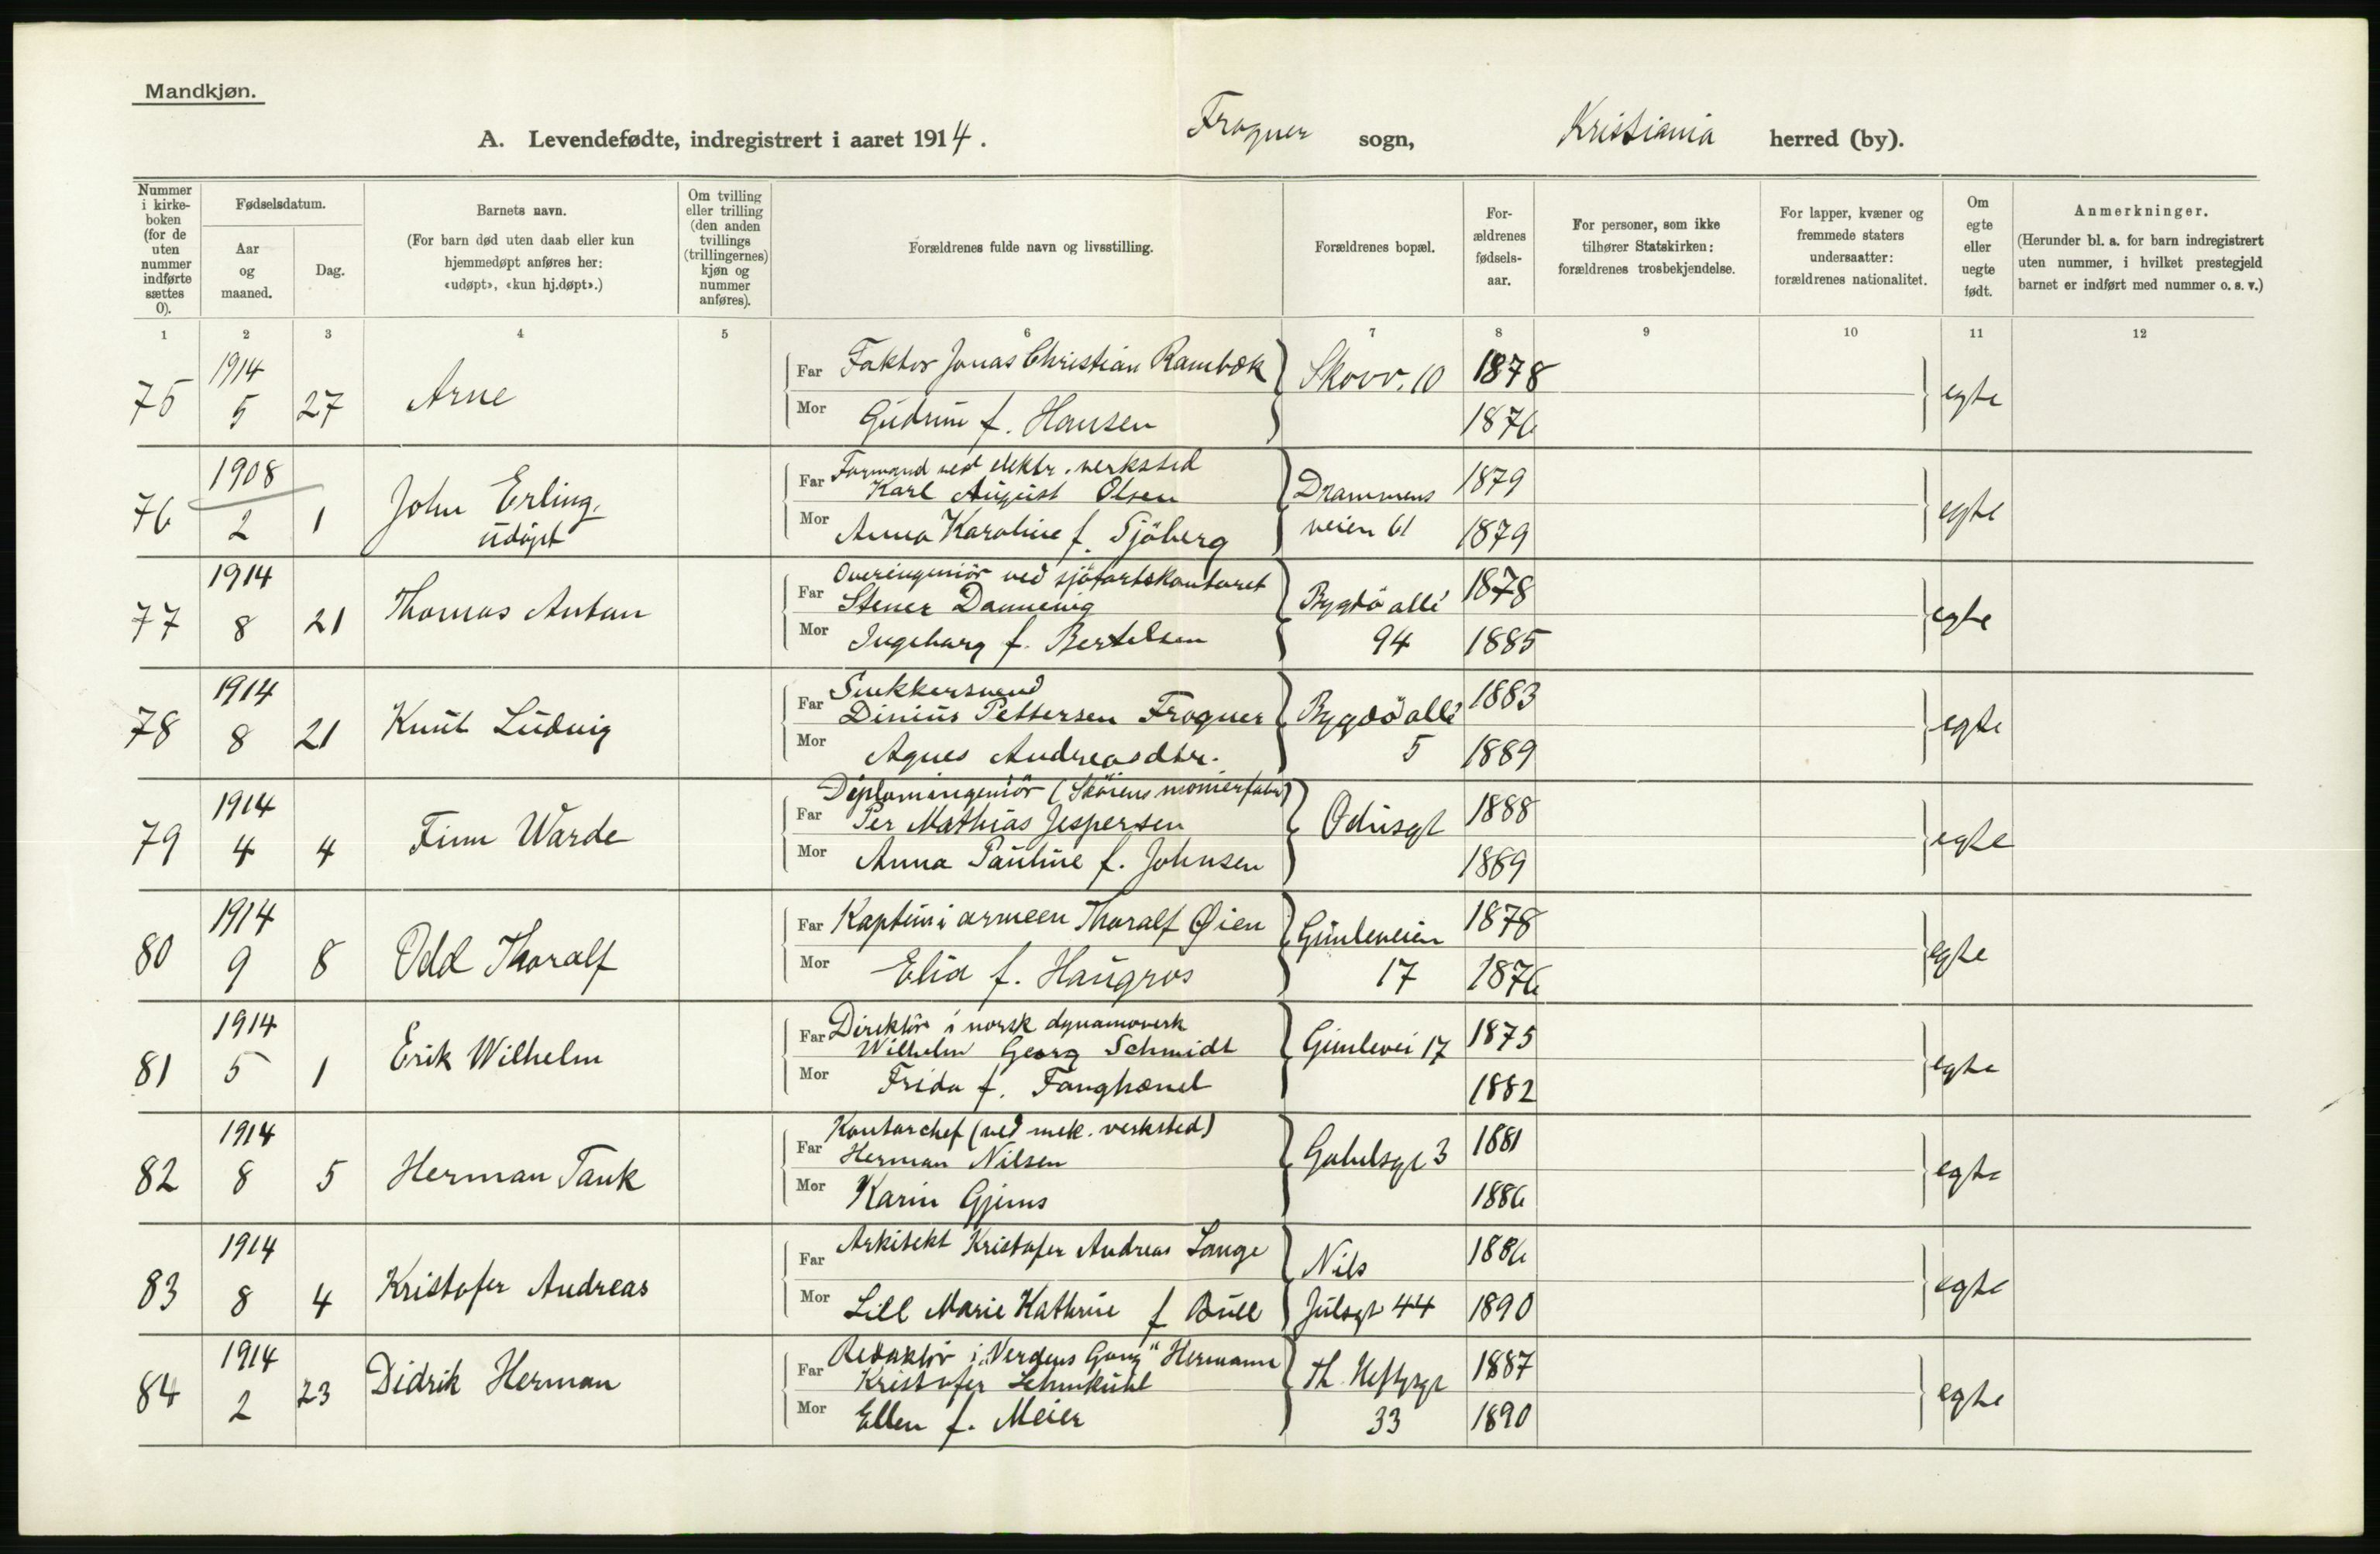 Mandkjøn.
A. Levendefødte, indregistrert i aaret 1914. Frogner sogn, Kristiania herred (by).
Nummer i kirkeboken (for de uten nummer indførte sættes 0).
Fødselsdatum.
Aar og maaned.
Dag.
Barnets navn.
(For barn død uten daab eller kun hjemmedøpt anføres her: «udøpt», «kun hj.døpt».)
Om tvilling eller trilling (den anden tvillings (trillingernes) kjøn og nummer anføres).
Forældrenes fulde navn og livsstilling.
Forældrenes bopæl.
Forældrenes fødselsaar.
For personer, som ikke tilhører Statskirken: forældrenes trosbekjendelse.
For lapper, kvæner og fremmede staters undersaatter: forældrenes nationalitet.
Om egte eller uegte født.
Anmerkninger.
(Herunder bl. a. for barn indregistrert uten nummer, i hvilket prestegjeld barnet er indført med nummer o. s. v.)
1 2 3 4 5 6 7 8 9 10 11 12
1914 Far Faktor Jonas Christian Rambæk Skovv. 10 1878
75 5 27 Arne egte
Mor Gudrun f. Hansen 1876
1908 Far Formand ved elektr. verksted
Karl August Olsen Drammens 1879
76 2 1 John Erling. egte
udøpt
Mor Anna Karoline f. Sjöberg veien 61 1879
1914 Far Overingeniør ved sjøfartskontoret
Stener Dannevig Bygdö allé 1878
77 8 21 Thomas Anton egte
Mor Ingeborg f. Bertelsen 94 1885
1914 Far Snekkersvend
Dinius Pettersen Frogner Bygdö allé 1883
78 8 21 Knut Ludvig egte
Mor Agnes Andreasdtr. 5 1889
1914 Far Diplomingeniör
Per Mathias Jespersen Odinsgt 1888
79 4 4 Finn Warde egte
Mor Anna Pauline f. Johnsen 1889
1914 Far Kaptein i armeen Thoralf Øien Gimleveien 1878
80 9 8 Odd Thoralf egte
Mor f. 17 1876
1914 Far Direktör i norsk dynamoverk
Wilhelm Georg Schmidt Gimlevei 17 1875
81 5 1 Erik Wilhelm egte
Mor Frida f. Fanghænel 1882
1914 Far Kontorchef (ved mek. verksted)
Herman Nilsen Gabelsgt 3 1881
82 8 5 Herman Tank egte
Mor Karin Gjems 1886
1914 Far Arkitekt Kristofer Andreas Lange Nils 1886
83 8 4 Kristofer Andreas egte
Mor Lill Marie Kathrine f Bull Juelsgt 44 1890
1914 Far Redaktör i „Verdens Gang" Hermann
Kristofer Lehmkuhl Th. Heftysgt 1887
84 2 23 Didrik Herman egte
Mor Ellen f. Meier 33 1890